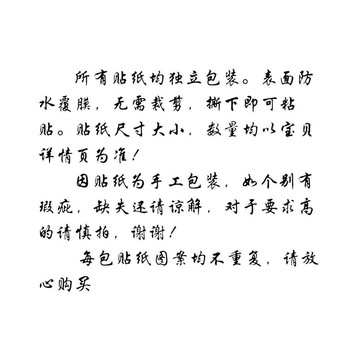 所有贴纸均独立包装。表面防
水覆膜，无需裁剪，撕下即可粘
贴。贴纸尺寸大小，数量均以宝贝
详情页为准！
因贴纸为手工包装，如个别有
瑕疵，缺失还请谅解，对于要求高
的请慎拍，谢谢！
每包贴纸图案均不重复，请放
心购买